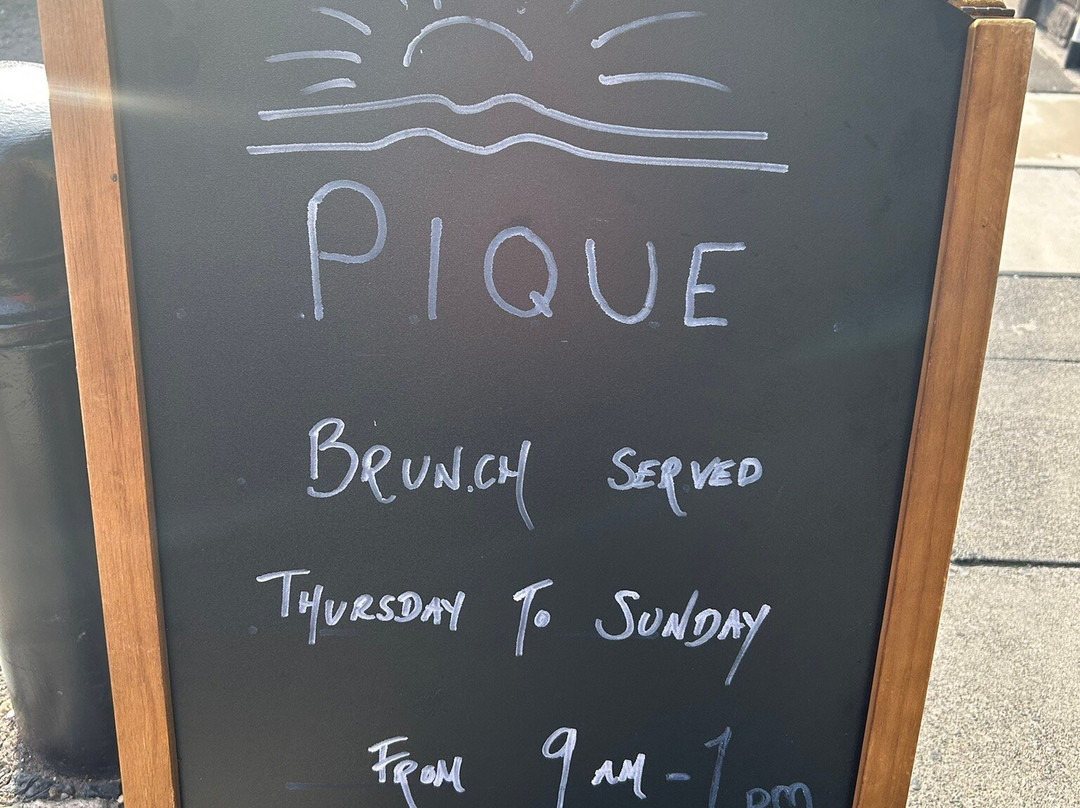 PIQUE
BRUN.CH SERVED
THURSDAY To SUNDAY
FROM 9 AM - 1 PM